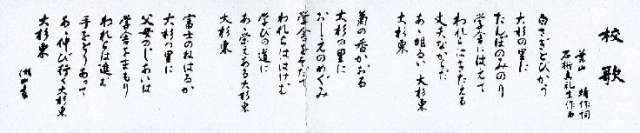 校歌
作詞
作曲
白さぎとびかう
大杉の里に
たんぼのみのり
学舎にはえて
われらはきたえる
丈夫なからだ
あゝ明るい大杉東
大杉東
菊の香かおる
大杉の里に
おしえのめぐみ
学舎をそだて
われらははげむ
学びの道に
あゝ栄える大杉東
大杉東
富士のねはるか
大杉の里に
父母のじあいは
学舎をまもり
われらは進む
手をとりあって
あゝ伸び行く大杉東
大杉東